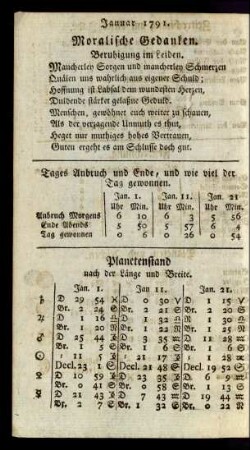 Januar 1791.
Moralische Gedanken.
Beruhigung im Leiden.
Mancherley Sorgen und mancherley Schmerzen
Quälen uns wahrlich aus eigener Schuld;
Hoffnung ist Labsal dem wundesten Herzen,
Duldende stärket gelaßne Geduld.
Menschen, gewöhnet euch weiter zu schauen,
Als der verzagende Unmuth es thut,
Heget nur muthiges hohes Vertrauen,
Guten ergeht es am Schlusse doch gut.
Tages Anbruch und Ende, und wie viel der
Tag gewonnen.
Jan. 1. Jan. 11. Jan. 21
Uhr Min. Uhr Min. Uhr Min.
Anbruch Morgens 6 10 6 3 5 56
Ende Abends 5 50 5 57 6 4
Tag gewonnen 0 6 0 26 0 54
Planetenstand
nach der Länge und Breite.
Jan. 1. Jan 11. Jan. 21.
♄ D 29 54 ♓ D 0 30 ♈ D 1 15 ♈
Br. 2 24 S Br. 2 21 S Br. 2 20 S
♃ D 1 16 ♎ D 1 32 ♎ R 1 30 ♎
Br. 1 20 N Br. 1 22 N Br. 1 25 N
♂ D 25 44 D 3 35 ♒ D 11 28 ♒
Br. 1 5 S Br. 1 6 S Br. 1 6 S
☉ 11 5 21 17 1 28 ♒
Decl. 23 1 S Decl. 21 48 S Decl. 19 52 S
♀ D 10 59 D 23 35 D 6 9 ♒
Br. 0 41 S Br. 0 58 S Br. 1 13 S
☿ D 21 43 D 7 43 ♒ D 19 44 ♒
Br. 2 7 S Br. 1 32 S Br. 0 22 N